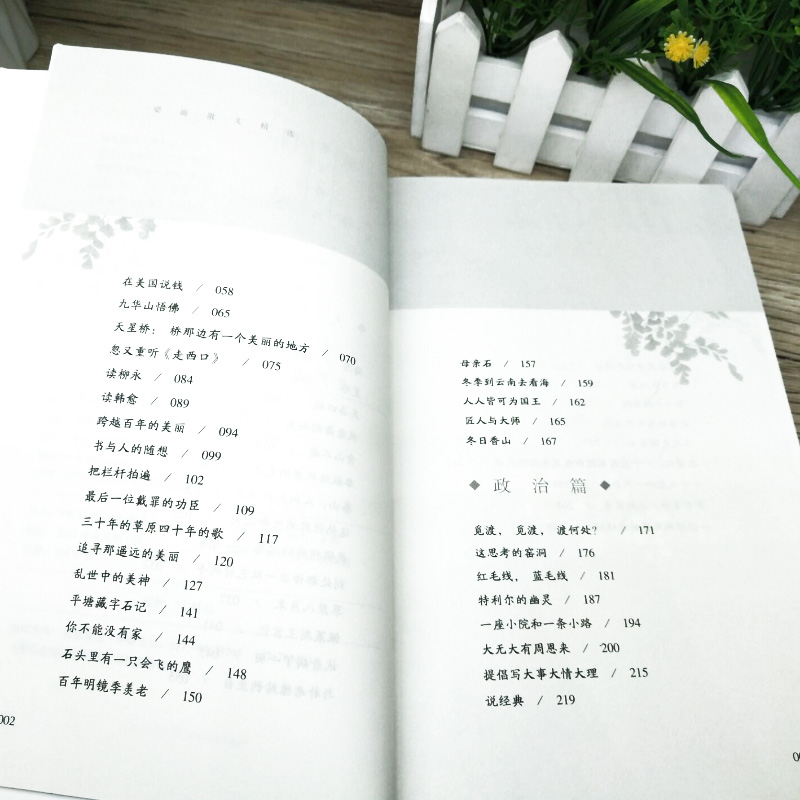 梁衡散文精选
在美国说钱 / 058
九华山悟佛 / 065
天星桥：桥那边有一个美丽的地方 / 070
忽又重听《走西口》 / 075
读柳永 / 084
读韩愈 / 089
跨越百年的美丽 / 094
书与人的随想 / 099
把栏杆拍遍 / 102
最后一位戴罪的功臣 / 109
三十年的草原四十年的歌 / 117
追寻那遥远的美丽 / 120
乱世中的美神 / 127
平塘藏字石记 / 141
你不能没有家 / 144
石头里有一只会飞的鹰 / 148
百年明镜季羡老 / 150
002
母亲石 / 157
冬季到云南去看海 / 159
人人皆可为国王 / 162
匠人与大师 / 165
冬日香山 / 167
◆ 政治篇 ◆
觅渡，觅渡，渡何处？ / 171
这思考的窑洞 / 176
红毛线，蓝毛线 / 181
特利尔的幽灵 / 187
一座小院和一条小路 / 194
大无大有周恩来 / 200
提倡写大事大情大理 / 215
说经典 / 219